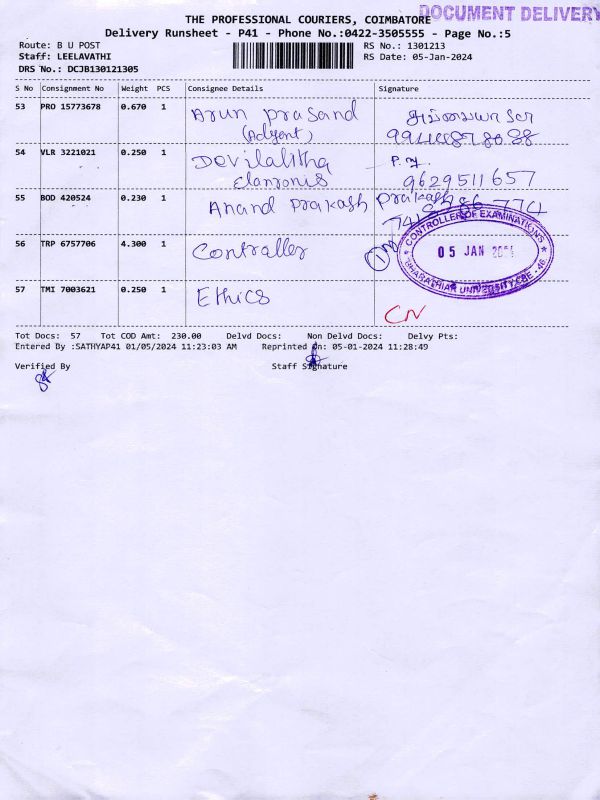 THE PROFESSIONAL COURIERS, COIMBATORE
DOCUMENT DELIVERY
Delivery Runsheet - P41 - Phone No.:0422-3505555 - Page No.:5
Route: B U POST
RS No.: 1301213
Staff: LEELAVATHI
RS Date: 05-Jan-2024
DRS No.: DCJB130121305
S No Consignment No Weight PCS Consignee Details Signature
53 PRO 15773678 0.670 1 Arun Prasand
(Adyent)
54 VLR 3221021 0.250 1 Devilalitha P.
9629511657
55 BOD 420524 0.230 1 Anand Prakash Prakash
56 TRP 6757706 4.300 1 Controller 1
CONTROLLER OF EXAMINATIONS
05 JAN
BHARATHIAR UNIVERSITY, CBE - 46
57 TMI 7003621 0.250 1 Ethics
CN
Tot Docs: 57 Tot COD Amt: 230.00 Delvd Docs: Non Delvd Docs: Delvy Pts:
Entered By :SATHYAP41 01/05/2024 11:23:03 AM Reprinted On: 05-01-2024 11:28:49
Verified By Staff Signature